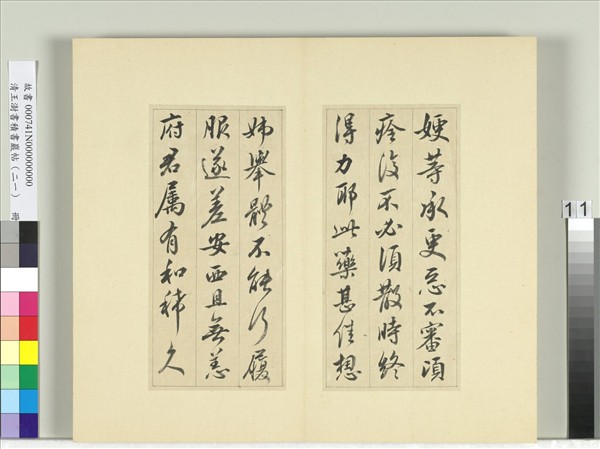 嫂等承更忘不審頃
痊復不必須散時終
得力耶此藥甚佳想
姊舉體不能行履
服遂差安西且無恙
府君屬有和秭久
故書 000741N000000000
清王澍書積書巖帖（二一） 冊
11